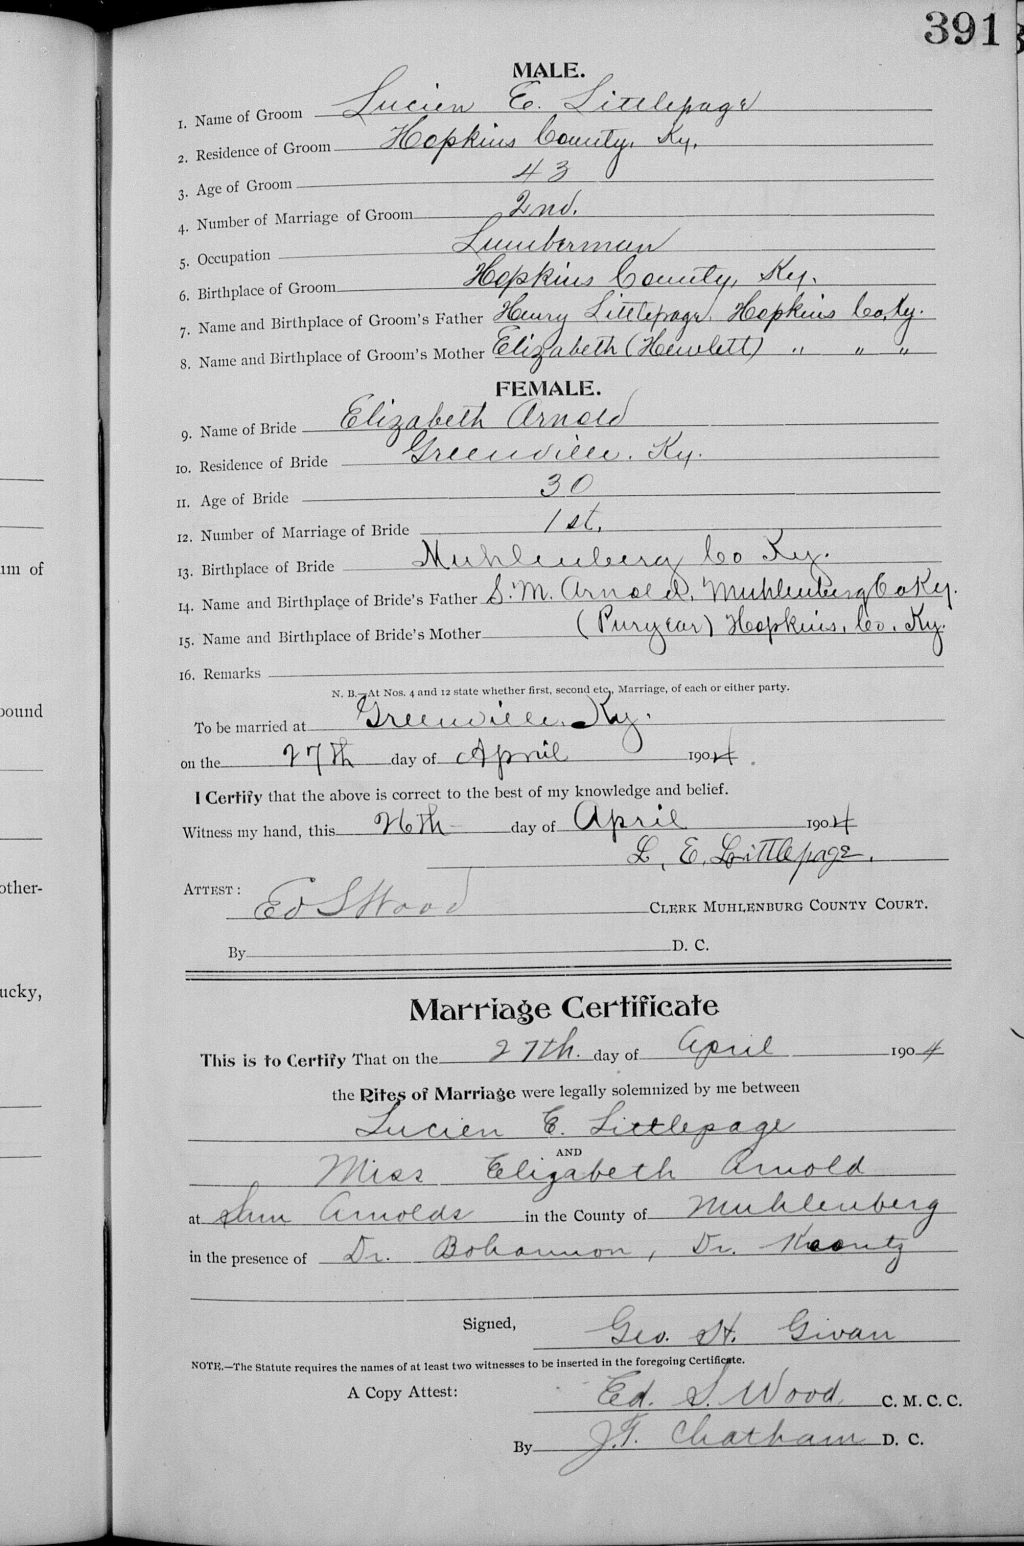 391
MALE.
1. Name of Groom Lucien E. Littlepage
2. Residence of Groom Hopkins County, Ky.
3. Age of Groom 43
4. Number of Marriage of Groom 2nd.
5. Occupation Lumberman
6. Birthplace of Groom Hopkins County, Ky.
7. Name and Birthplace of Groom's Father Henry Littlepage Hopkins Co, Ky.
8. Name and Birthplace of Groom's Mother Elizabeth (Hewlett) " " "
FEMALE.
9. Name of Bride Elizabeth Arnold
10. Residence of Bride Greenville, Ky.
11. Age of Bride 30
12. Number of Marriage of Bride 1st.
um of
13. Birthplace of Bride Muhlenberg Co Ky.
14. Name and Birthplace of Bride's Father S. M. Arnold, Muhlenberg Co Ky.
15. Name and Birthplace of Bride's Mother (Puryear) Hopkins, Co, Ky.
16. Remarks
N. B.—At Nos. 4 and 12 state whether first, second etc., Marriage, of each or either party.
ound
To be married at Greenville, Ky.
on the 27th day of April 1904.
I Certify that the above is correct to the best of my knowledge and belief.
Witness my hand, this 26th day of April 1904
L, E, Littlepage.
other-
ATTEST: Ed S Wood CLERK MUHLENBURG COUNTY COURT.
By D. C.
ucky,
Marriage Certificate
This is to Certify That on the 27th. day of April 1904
the Rites of Marriage were legally solemnized by me between
Lucien E. Littlepage
AND
Miss Elizabeth Arnold
at Sam Arnolds in the County of Muhlenberg
in the presence of Dr. Bohannon, Dr. Koontz
Signed, Geo. H. Givan
NOTE.—The Statute requires the names of at least two witnesses to be inserted in the foregoing Certificate.
A Copy Attest: Ed. S. Wood C. M. C. C.
By J. T. Chatham D. C.